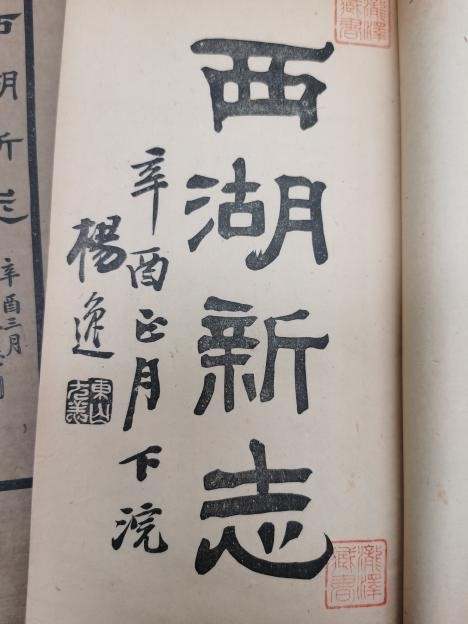 瀧澤
藏書
西湖新志
辛酉正月下浣
楊逸
東山
瀧澤
藏書
西湖新志
辛酉三月